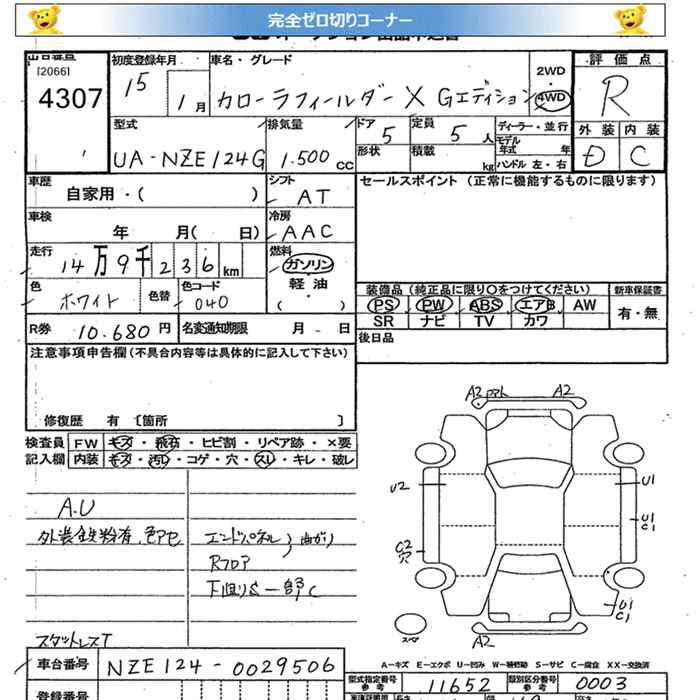 完全ゼロ切りコーナー
出品番号
[2066]
4307
初度登録年月
15
1月
車名・グレード
カローラフィールダー X Gエディション
2WD
4WD
評価点
R
外装 内装
D C
型式
UA-NZE124G
排気量
1.500 cc
ドア
5
定員
5 人
形状
積載
kg
ディーラー・並行
モデル年式 年
ハンドル 左・右
車歴
自家用・( )
シフト
AT
車検
年 月( 日)
冷房
AAC
走行
14万9千236km
燃料
ガソリン
軽油
( )
色
ホワイト
色替
色コード
040
R券 10.680円
名変通知期限 月 日
セールスポイント (正常に機能するものに限ります)
装備品(純正品に限り○をつけてください)
PS PW ABS エアB AW
SR ナビ TV カワ
新車保証書
有・無
後日品
注意事項申告欄(不具合内容等は具体的に記入して下さい)
修復歴 有 [箇所 ]
検査員記入欄
FW キズ・飛石・ヒビ割・リペア跡・×要
内装 キズ・汚レ・コゲ・穴・スレ・キレ・破レ
A.U
外装鉄粉有、色アセ
エンドパネル
Rフロア
曲がり
下回り 一部C
スタットレスT
A2
U2
U1
U1
C1
C2
穴
U1
C1
スペア
A2
A-キズ E-エクボ U-凹み W-補修跡 S-サビ C-腐食 XX-交換済
車台番号 NZE124-0029506
型式指定番号 参考 11652
類別区分番号 参考 0003
登録番号